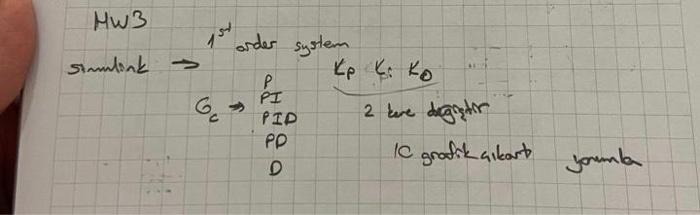 HW3
1st order system
simulink →
Kp Ki KD
Gc → P
PI
PID
PD
D
2 kere değiştir
10 grafik çıkart yorumla